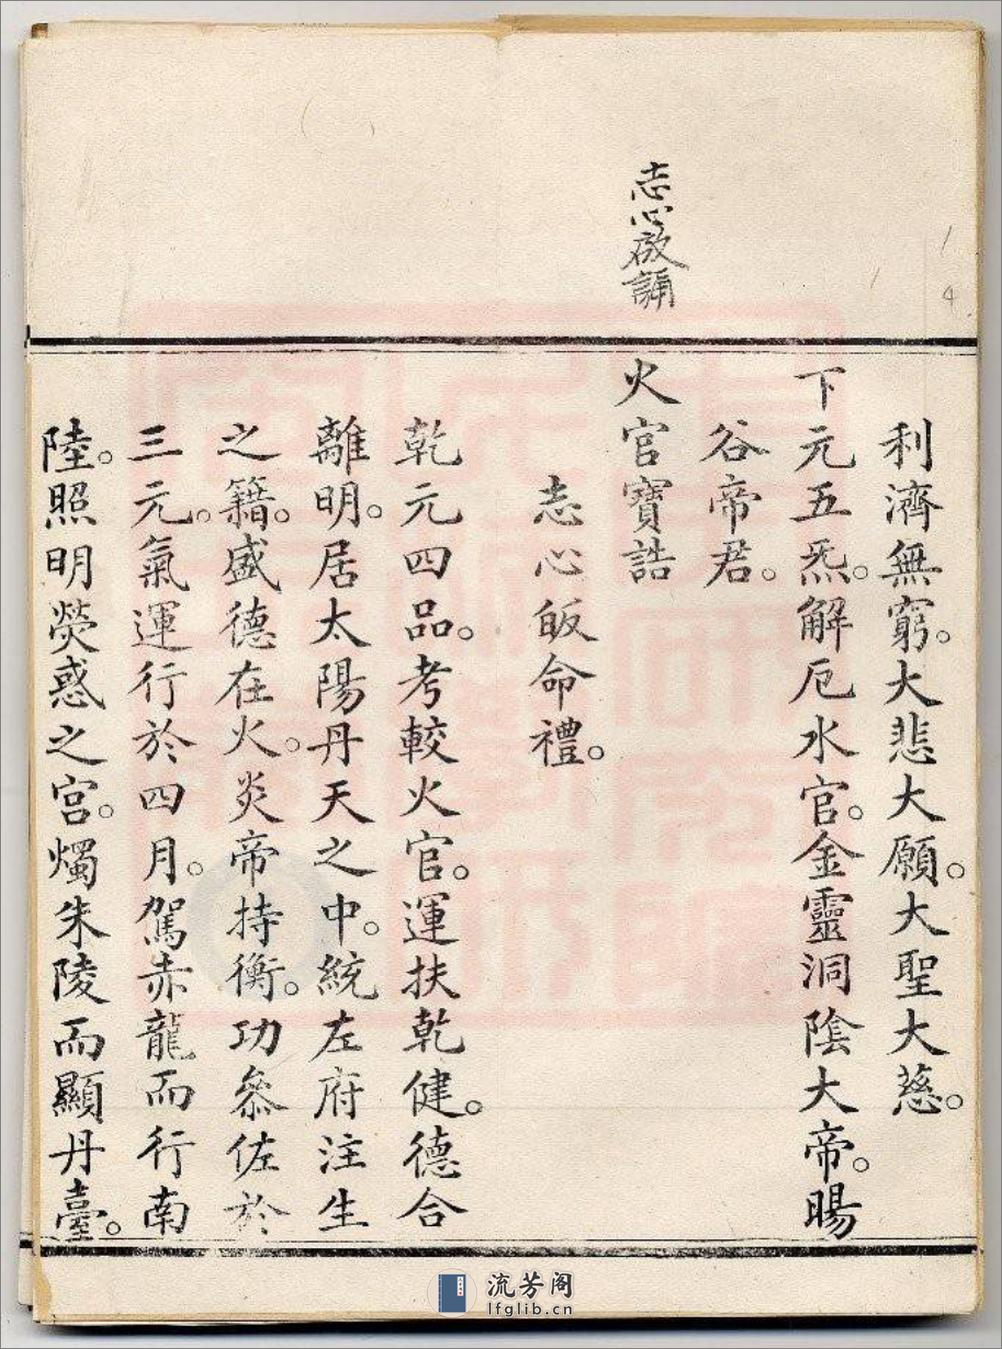 志心啟誦
利濟無窮。大悲大願。大聖大慈。
下元五炁。解厄水官。金靈洞陰大帝。暘
谷帝君。
火官寶誥
志心皈命禮。
乾元四品。考較火官。運扶乾健。德合
離明。居太陽丹天之中。統左府注生
之籍。盛德在火。炎帝持衡。功叅佐於
三元。氣運行於四月。駕赤龍而行南
陸。照明熒惑之宮。燭朱陵而顯丹臺。
4
流芳阁
lfglib.cn